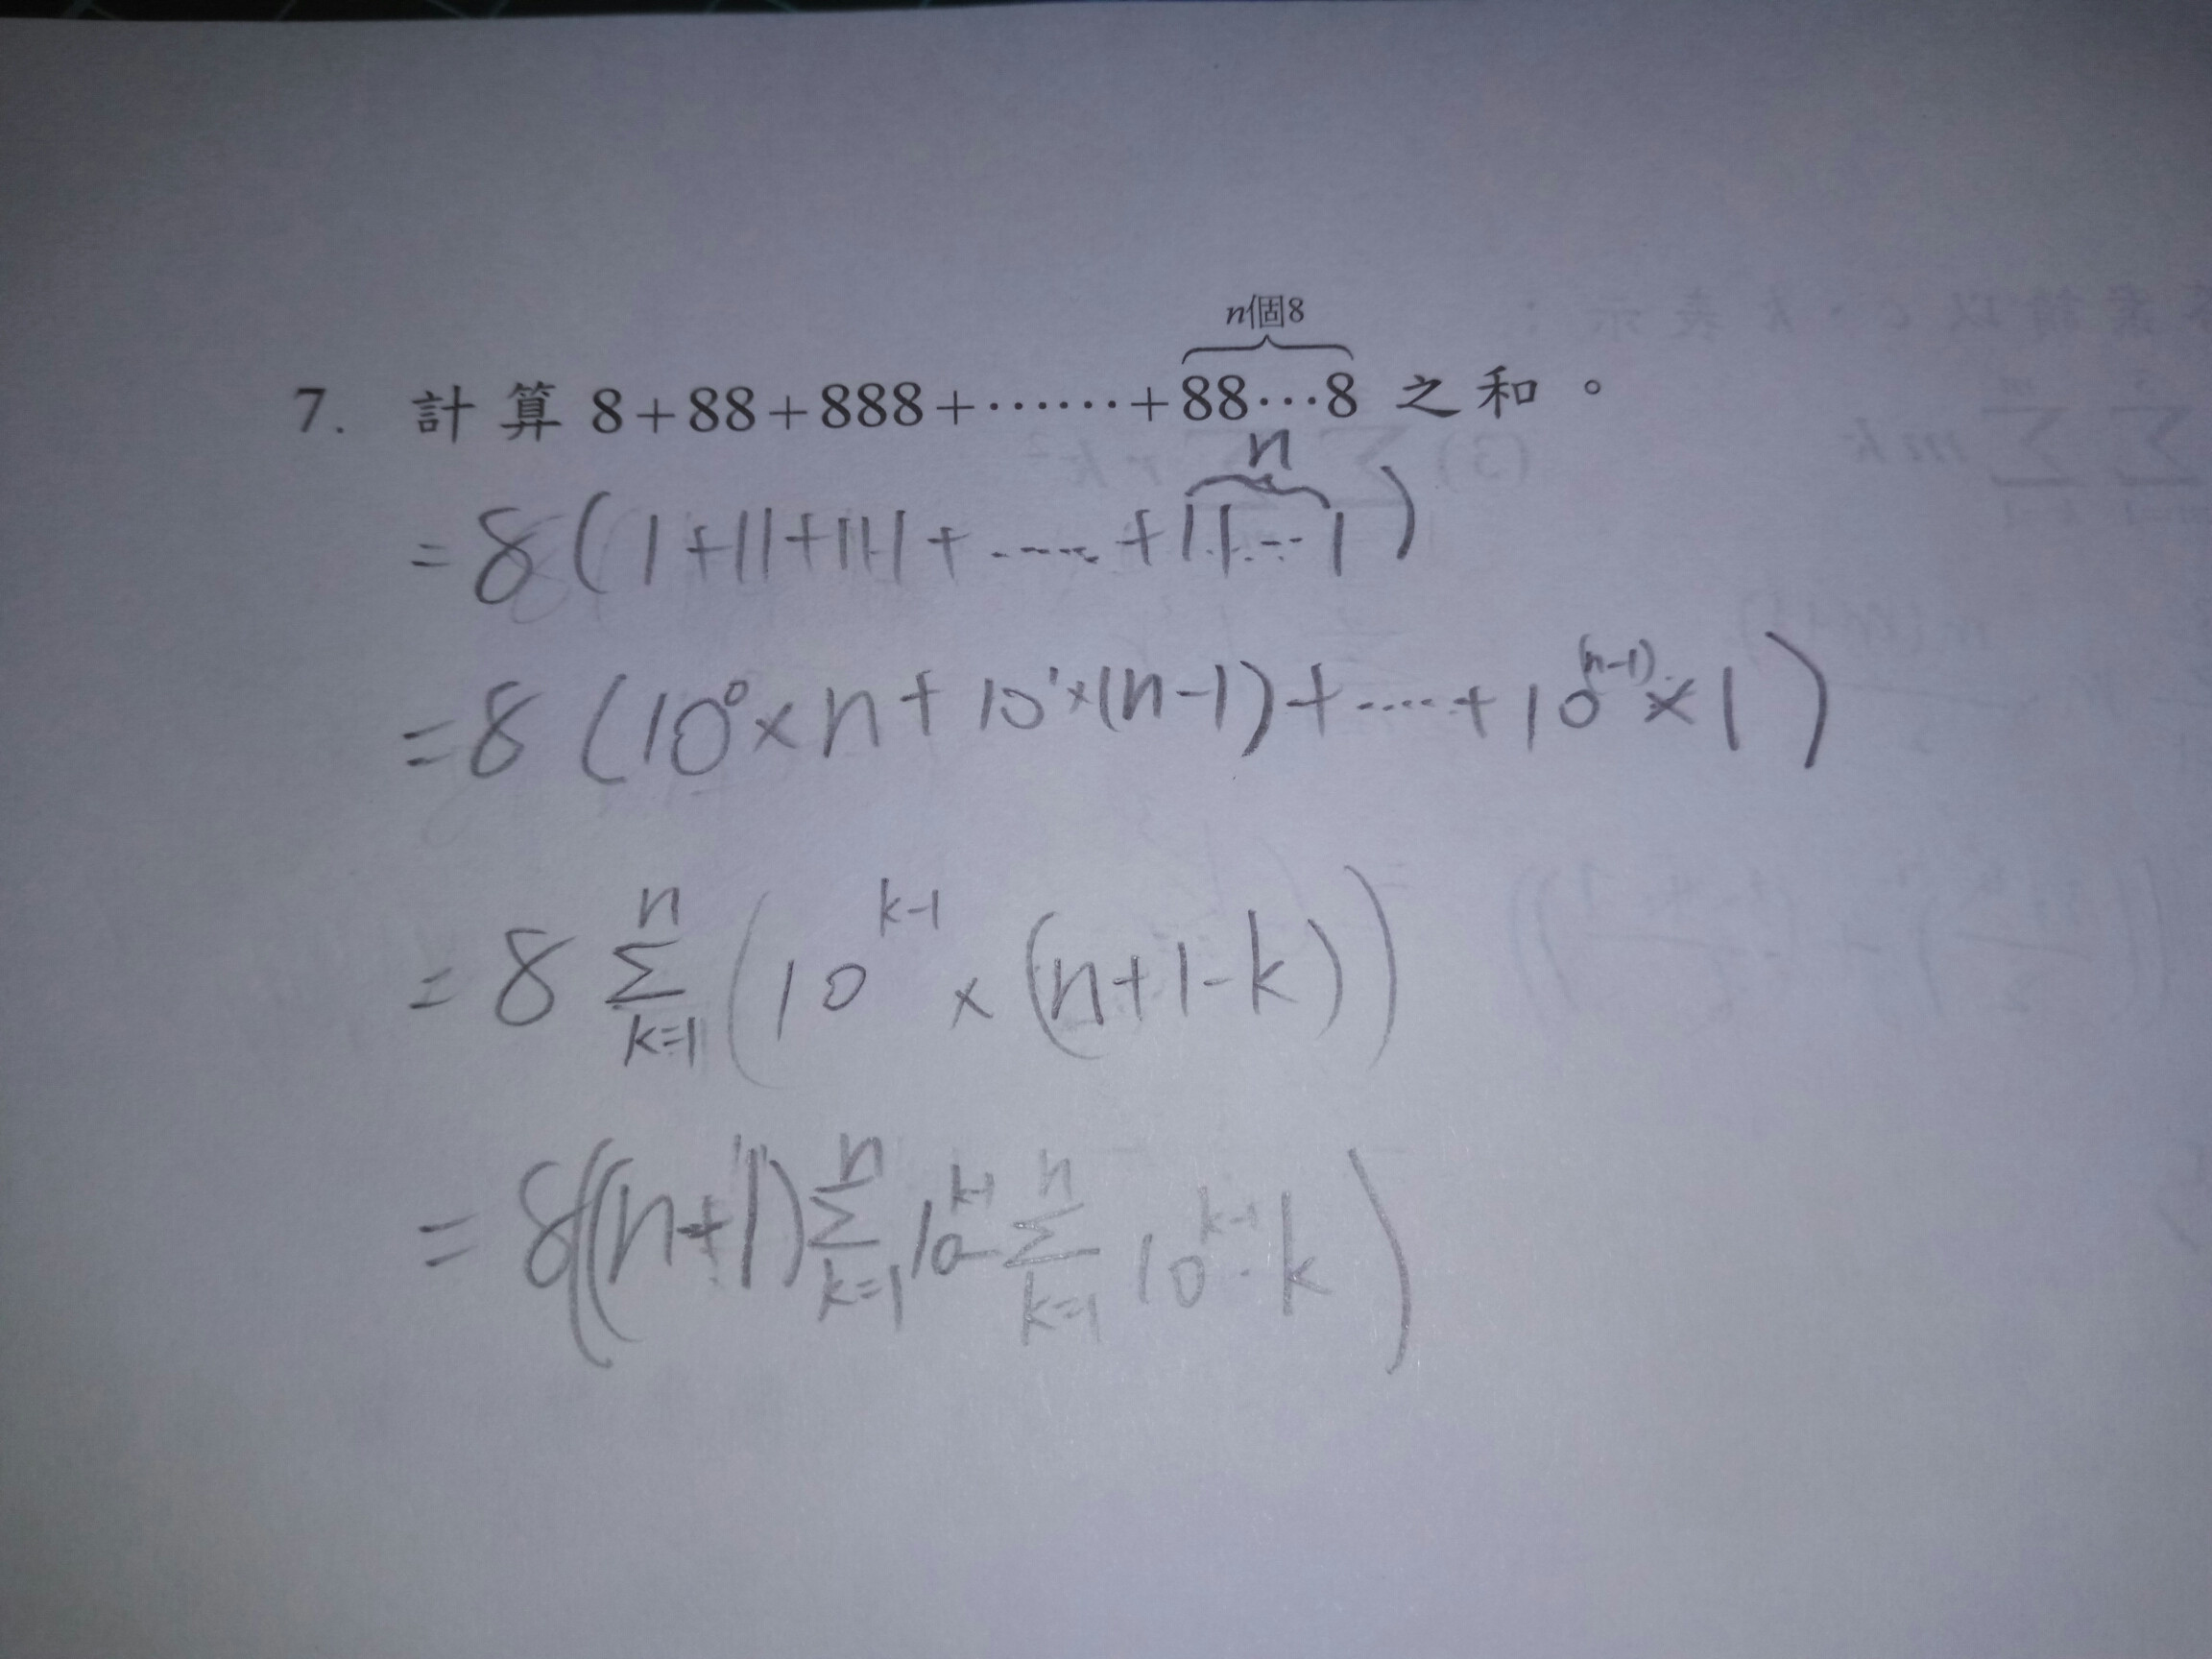 n個8
7. 計算 8+88+888+⋯⋯+88⋯8 之和。
n
=8(1+11+111+⋯⋯+11⋯1)
=8(10⁰×n+10¹×(n-1)+⋯⋯+10⁽ⁿ⁻¹⁾×1)
=8 n∑k=1 (10^{k-1}×(n+1-k))
=8((n+1) n∑k=1 10^{k-1} - n∑k=1 10^{k-1}·k)